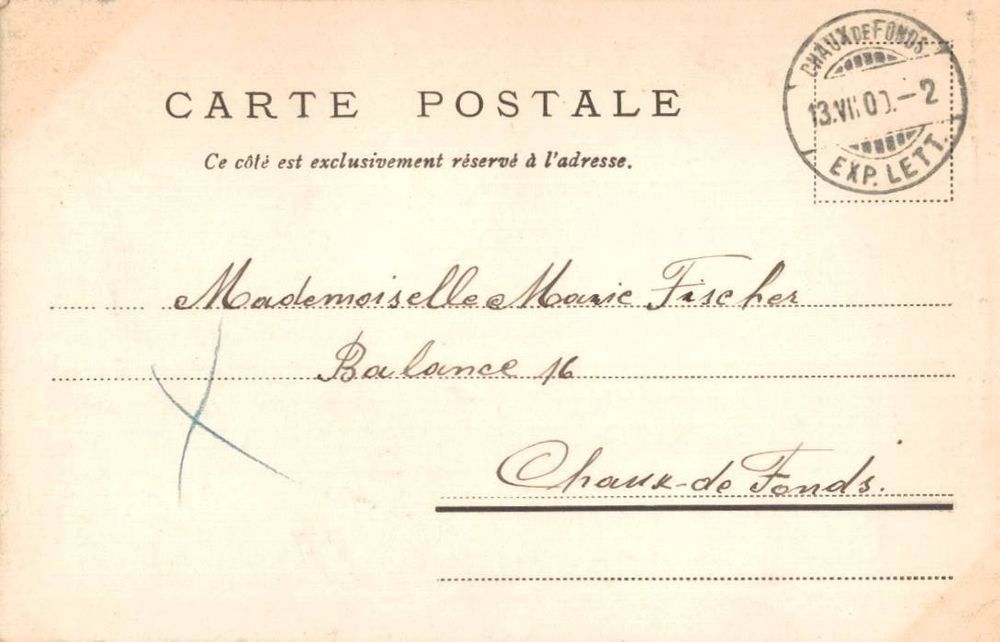 CHAUX DE FONDS
13.VII.00.-2
EXP. LETT.
CARTE POSTALE
Ce côté est exclusivement réservé à l'adresse.
Mademoiselle Marie Fischer
Balance 16
Chaux-de Fonds.